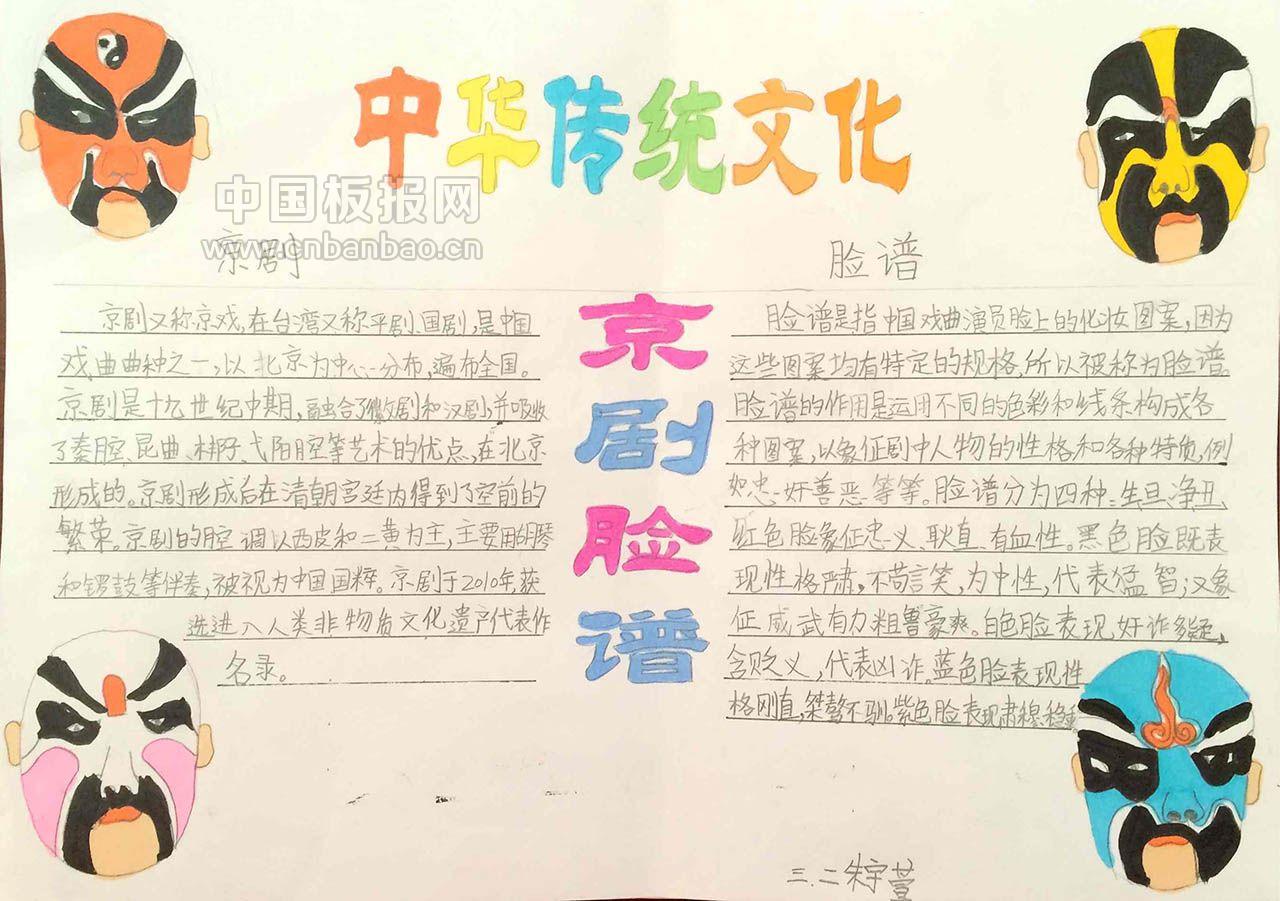 中华传统文化
中国板报网
www.cnbanbao.cn
京剧
京剧又称京戏,在台湾又称平剧、国剧,是中国
戏曲曲种之一,以北京为中心分布,遍布全国。
京剧是十九世纪中期,融合了徽剧和汉剧,并吸收
了秦腔、昆曲、梆子、弋阳腔等艺术的优点,在北京
形成的。京剧形成后在清朝宫廷内得到了空前的
繁荣。京剧的腔调以西皮和二黄为主,主要用胡琴
和锣鼓等伴奏,被视为中国国粹。京剧于2010年获
选进入人类非物质文化遗产代表作
名录。
京
剧
脸
谱
脸谱
脸谱是指中国戏曲演员脸上的化妆图案,因为
这些图案均有特定的规格,所以被称为脸谱。
脸谱的作用是运用不同的色彩和线条构成各
种图案,以象征剧中人物的性格和各种特质,例
如忠奸善恶等等。脸谱分为四种:生旦、净丑、
红色脸象征忠义、耿直、有血性。黑色脸既表
现性格严肃,不苟言笑,为中性,代表猛智;又象
征威武有力粗鲁豪爽。白色脸表现奸诈多疑,
含贬义,代表凶诈。蓝色脸表现性
格刚直,桀骜不驯。紫色脸表现肃穆、稳重
三.二朱宇萱